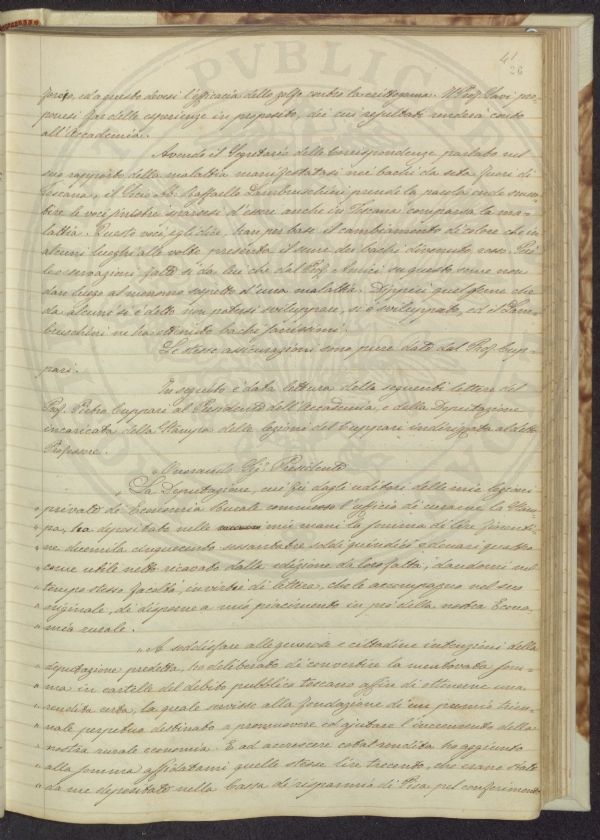 41
26
forzo, ed a questo devesi l'efficacia dello zolfo contro la crittogama. Il Prof. Savi pro-
ponesi far delle esperienze in proposito, dei cui resultati renderà conto
all'Accademia.
Avendo il Segretario delle Corrispondenze parlato nel
suo rapporto della malattia manifestatasi nei bachi da seta fuori di
Toscana, il Socio Ab. Raffaello Lambruschini prende la parola onde smen-
tire le voci sinistre sparsesi d'essere anche in Toscana comparsa la ma-
lattia. Queste voci, egli dice, han per base il cambiamento di colore che in
alcuni luoghi alle volte presenta il seme dei bachi divenuto roseo. Più
le osservazioni fatte sì da lui che dal Prof. Amici su questo seme non
dan luogo al menomo sospetto d'una malattia. Dippiù quel seme che
da alcuni si è detto non potersi sviluppare, si è sviluppato, ed il Lam-
bruschini ne ha ottenuto bachi sanissimi.
Le stesse assicurazioni sono pure date dal Prof. Cup-
pari.
In seguito è data lettura della seguente lettera del
Prof. Pietro Cuppari al Presidente dell'Accademia, e della Deputazione
incaricata della Stampa delle lezioni del Cuppari indirizzata al detto
Professore.
"Onorando Sig. Presidente
"La Deputazione, cui fu dagli uditori delle mie lezioni
" private di Economia Rurale commesso l'ufficio di curarne la Stam-
" pa, ha depositato nelle mie mani la somma di lire fiorenti-
" ne duemila cinquecento sessantatre soldi quindici e denari quattro
" come utile netto ricavato dalla edizione da loro fatta, dandomi nel
" tempo stesso facoltà, in virtù di lettera, che le accompagno nel suo
" originale, di disporne a mio piacimento in pro della nostra Econo-
" mia rurale.
"A soddisfare alle generose e cittadine intenzioni della
" deputazione predetta, ho deliberato di convertire la mentovata som-
" ma in cartelle del debito pubblico toscano affin di ottenerne una
" rendita certa, la quale servisse alla fondazione di un premio trien-
" nale perpetuo destinato a promuovere ed ajutare l'incremento della
" nostra rurale economia. E ad accrescere cotal rendita ho aggiunto
" alla somma affidatami quelle stesse lire trecento, che erano state
" da me depositate nella Cassa di risparmio di Pisa pel conferimento